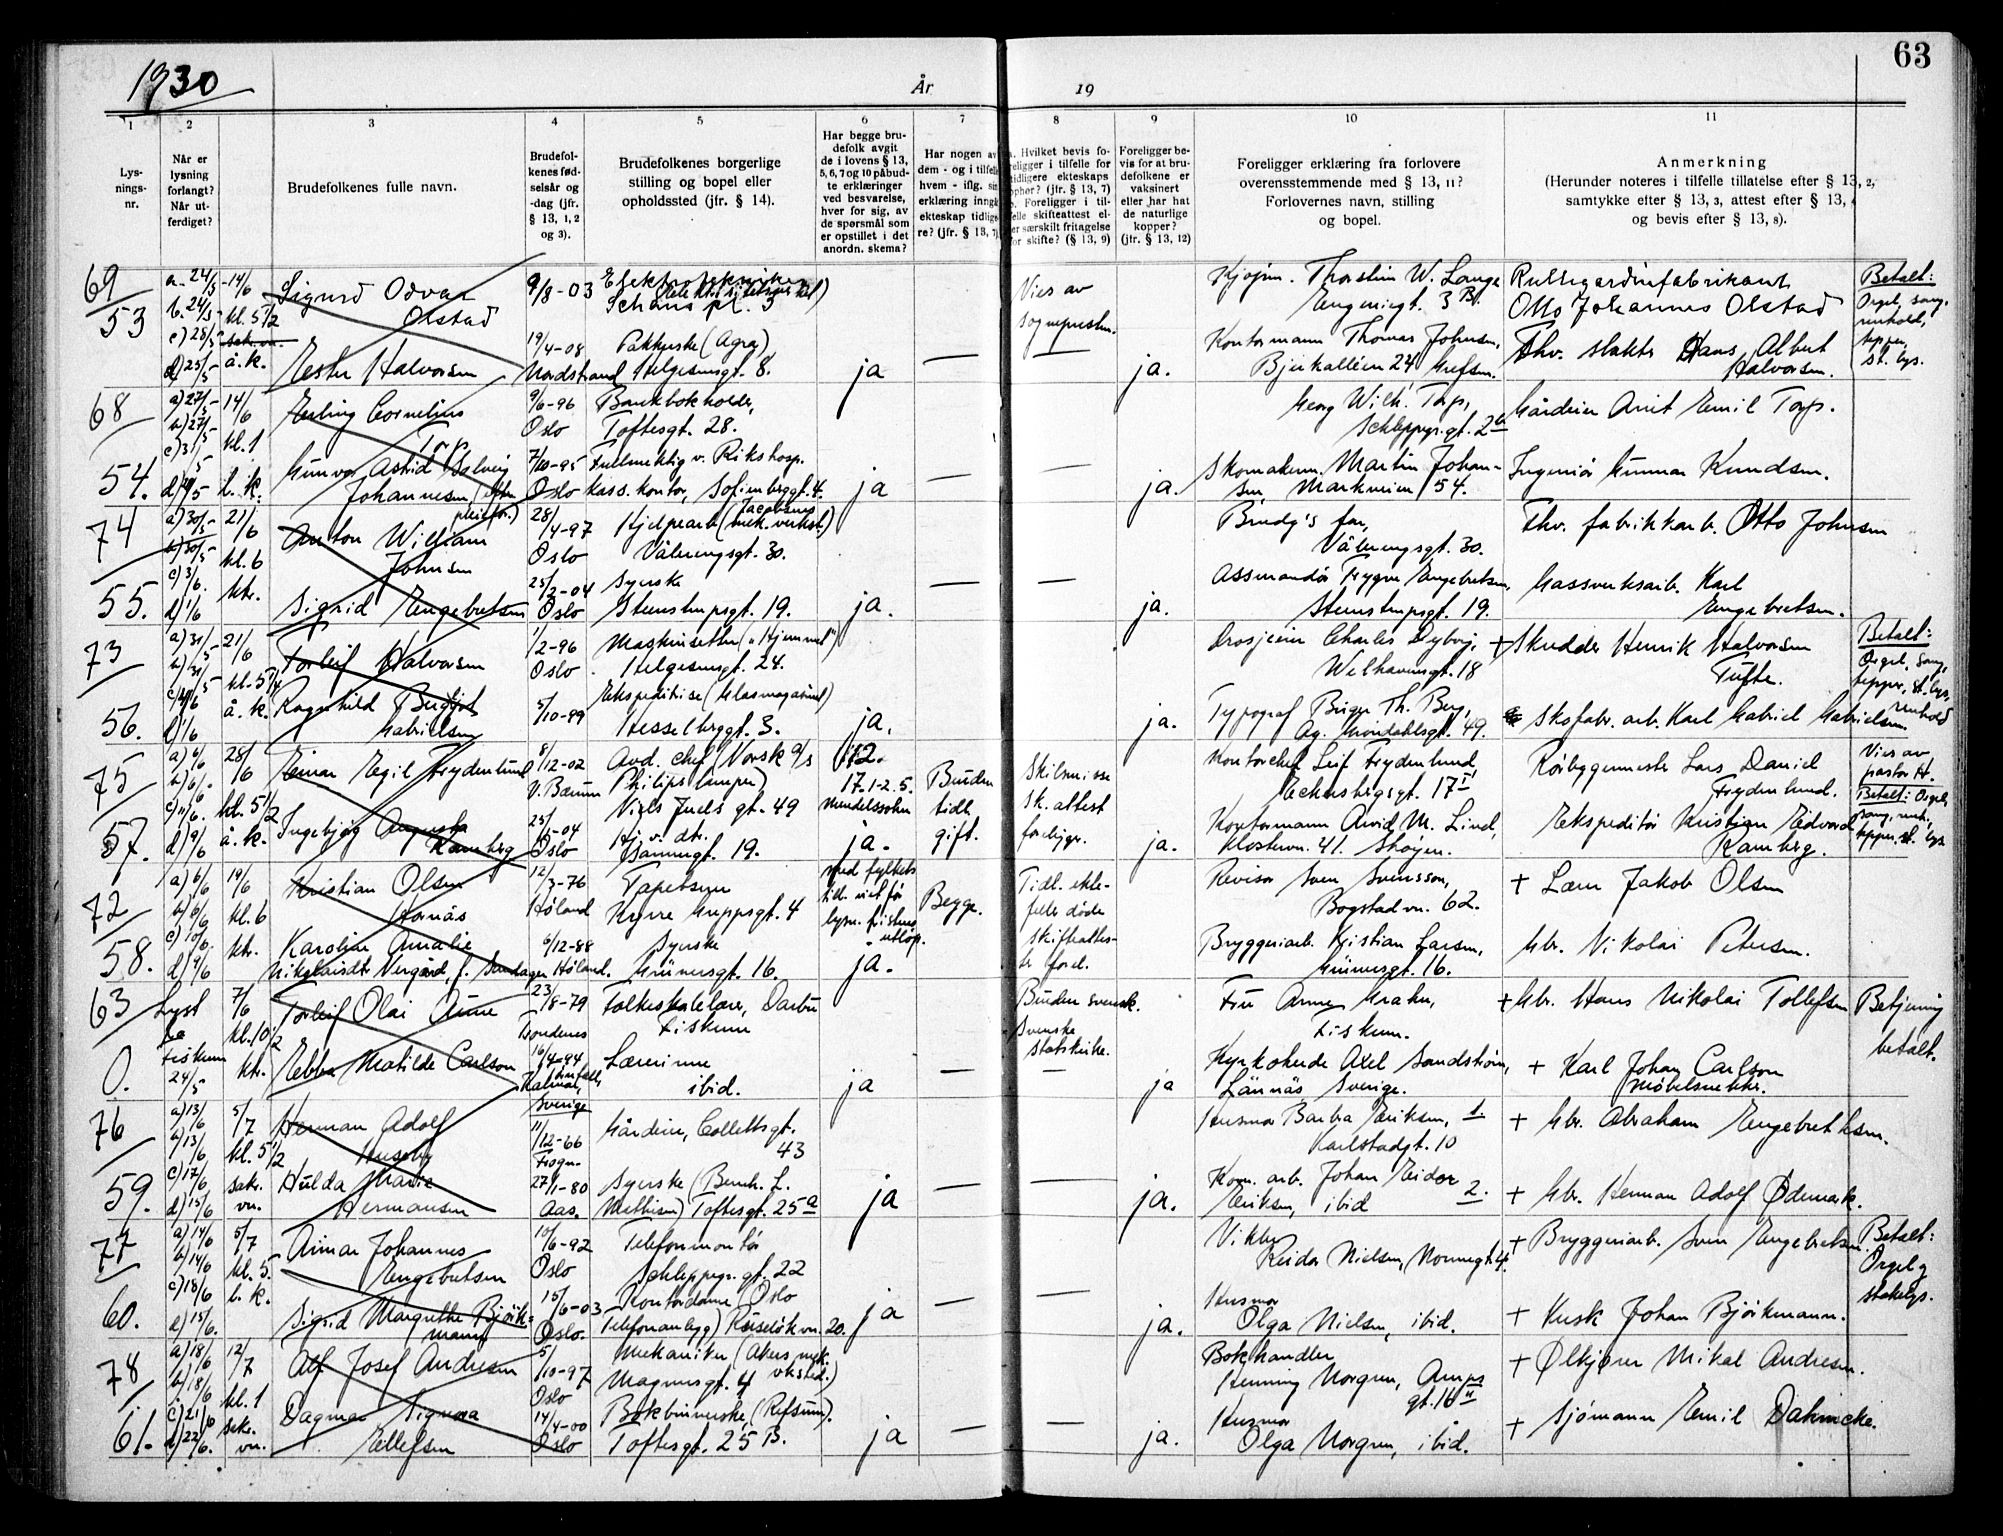 1930
År
19
63
1
2
3
4
5
6
7
8
9
10
11
Lys-
nings-
nr.
Når er
lysning
forlangt?
Når ut-
ferdiget?
Brudefolkenes fulle navn.
Brudefol-
kenes fød-
selsår og
-dag (jfr.
§ 13, 1, 2
og 3).
Brudefolkenes borgerlige
stilling og bopel eller
opholdssted (jfr. § 14).
Har begge bru-
defolk avgit
de i lovens § 13,
5, 6, 7 og 10 påbud-
te erklæringer
ved besvarelse,
hver for sig, av
de spørsmål som
er opstillet i det
anordn. skema?
Har nogen av
dem - og i tilfelle
hvem - iflg. sin
erklæring inngått
ekteskap tidlige-
re? (jfr. § 13, 7)
Hvilket bevis fo-
religger i tilfelle for
tidligere ekteskaps
ophør? (jfr. § 13, 7)
Foreligger i til-
felle skifteattest el-
ler særskilt fritagelse
for skifte? (§ 13, 9)
Foreligger be-
vis for at bru-
defolkene er
vaksinert
eller har hat
de naturlige
kopper?
(jfr. § 13, 12)
Foreligger erklæring fra forlovere
overensstemmende med § 13, 11?
Forlovernes navn, stilling
og bopel.
Anmerkning
(Herunder noteres i tilfelle tillatelse efter § 13, 2,
samtykke efter § 13, 3, attest efter § 13,
og bevis efter § 13, 8).
69
53
a. 24/5 - 14/6
b. 24/5 kl. 5 1/2
c) 28/5
d) 25/5 å.k.
Sigurd Odvar
Olstad
9/8-03
Schous pl. 3
Vies av
sognepresten.
Thorstein W. Lange
Eugeniegt. 3 B.
Rullegardinfabrikant
Otto Johannes Olstad
Betalt:
Orgel, sang,
Ester Halvorsen
19/4-08
Nordstrand
Pakkerske (Agra)
Helgesensgt. 8.
ja
—
—
ja.
Kontormann Thomas Johnsen,
Bjerkalléen 24 Grefsen.
Fhv. slakter Hans Albert
Halvorsen.
68
54.
a) 27/5 - 14/6
b) 27/5 kl. 1
c) 31/5
Erling Cornelius
Torp
9/6-96
Oslo
Bankbokholder,
Toftesgt. 28.
Georg Wilh. Torp,
Schleppegr.gt. 26
Gårdeier Arnt Emil Torp.
Gunvor Astrid Solveig
Johannesen
7/10-95
Oslo
Fullmektig v. Rikshosp.
kass. kontor, Sofienberggt. 4.
ja
—
—
ja.
Skomakerm. Martin Johan-
sen, Markveien 54.
Ingeniør Gunnar Knudsen.
74
55.
a) 30/5 21/6
b) 30/5 kl. 6
c) 3/6. ktr.
d) 1/6
Anton William
Johnsen
28/4-97
Oslo
Hjelpearb. (Jacobsens
mek. verksted.)
Vålerengsgt. 30.
Brudg's far,
Vålerengsgt. 30.
Fhv. fabrikkarb. Otto Johnsen
Sigrid Engebretsen
25/2-04
Oslo
Syerske
Steenstrupsgt. 19.
ja.
—
—
ja.
Trygve Engebretsen,
Steenstrupsgt. 19.
Gassverksarb. Karl
Engebretsen.
73
56.
a) 31/5 21/6
b) 31/5
å.k.
d) 1/6
Torleif Halvorsen
1/2-96
Oslo
Maskinsetter ("Hjemmet")
Helgesensgt. 24.
Drosjeeier Charles Dybvig,
Welhavensgt. 18
+ Skredder Henrik Halvorsen
Tufte.
Betalt:
Orgel, sang,
tepper, st. lys,
Ragnhild Bergljot
Gabrielsen
5/10-99
Ekspeditrise (Glasmagasinet)
Hesselberggt. 3.
ja.
ja.
Typograf Birger Th. Berg,
Ag. Grøndahlsgt. 49.
Skofabr. arb. Karl Gabriel Gabrielsen
75
57.
a) 6/6 28/6
b) 6/6. kl. 5 1/2
c) 11/6.
d) 9/6 å.k.
Einar Egil Frydenlund
8/12-02
V. Bærum
Avd. chef (Norsk A/S
Philipslamper)
Niels Juels gt. 49
172.
17.1-2.5.
Mendelssohn
Bruden
tidl.
gift.
Skilsmisse
sk. attest
foreligger.
Kontorchef Leif Frydenlund,
Eckersbergsgt. 17 I
Rørleggermester Lars Daniel
Frydenlund.
Vies av
pastor H.
Betalt: Orgel,
Ingebjørg Augusta
Ramberg
Oslo
Hj. v. dr.
19.
ja.
ja.
Kontormann Arvid M. Lind,
Klosterv. 41. Skøyen.
Ekspeditør Kristian Edvard
Ramberg.
72
58.
a) 6/6 19/6
b) 6/6 kl. 6
c) 10/6. ktr.
d) 9/6
Kristian Olsen
Hornæs
12/3-76
Høland
Tapetserer
Nygre Greppsgt. 4
Begge.
Tidl. ekte-
feller døde
skifteattes-
ter forel.
Revisor Sven Svensson,
Bogstadvn. 62.
+ Lærer Jakob Olsen
Karoline Amalie
6/12-88
Høland.
Syerske
Grünersgt. 16.
ja.
Bryggeriarb. Kristian Larsen,
Grünersgt. 16.
Gbr. Nikolai Petersen.
63
0.
Lyst
fra
Fiskum
24/5
7/6
kl. 10 1/2
ktr.
Torleif Olai Aune
23/8-79
Trondenes
Folkeskolelærer, Darbu
Fiskum
Bruden svensk.
Svenske
statskirke.
Fru Anne Krahn,
Fiskum.
+ Gbr. Hans Nikolai Tollefsen
Betjening
betalt.
Ebba Matilde Carlson
16/4-94
Kalmar,
Sverige
Lærerinne
ibid.
ja
—
—
ja
Kyrkoherde Axel Sandstrøm,
Lännäs Sverige.
+ Karl Johan Carlson
Møbelsnekker.
76
59.
a) 13/6 5/7
b) 13/6 kl. 5 1/2
c) 17/6 sakr.
d) 15/6 vn.
Herman Adolf
Huseby
11/12-66
Frogn.
Gårdeier, Collettsgt.
43
Husmor Barbra Eriksen, 1.
Karlstadgt. 10
+ Gbr. Abraham Engebrethsen.
Hulda Marie
Hermansen
27/1-80
Aas.
Syerske (Bernh. L.
Mathisen) Toftesgt. 25 a
ja
—
—
ja.
Kom. arb. Johan Reidar 2.
Eriksen, ibid
+ Gbr. Herman Adolf Ødemark.
77
60.
a) 14/6 5/7
b) 14/6 kl. 5.
c) 18/6 b.k.
d) 15/6.
Einar Johannes
Engebretsen
10/6-92
Oslo
Telefonmontør
Schleppegr.gt. 22
Reidar Nielsen, Normegt. 4.
+ Bryggeriarb. Sven Engebretsen.
Betalt:
Orgel
stakelys.
Sigrid Margrethe Bjørk-
mann
15/6-03
Oslo.
Kontordame (Oslo
Telefonanlegg) Ruseløkvn. 20.
ja
—
—
ja.
Husmor
Olga Nielsen, ibid.
+ Kusk Johan Bjørkmann.
78
61.
a) 18/6 12/7
b) 18/6 kl. 1
c) 21/6 sakr.
d) 22/6. vn.
Alf Josef Andresen
5/10-97
Oslo
Mekaniker (Akers mek.
vksted.)
Magnusgt. 4
Bokhandler
Henning Norgren, Amps
gt. 16 II
+ Ølkjører Mikal Andresen.
Dagmar Signora
Ellefsen
14/4-00
Oslo
Bokbinderske, (Refsum).
Toftesgt. 25 B.
ja
—
—
ja.
Husmor
Olga Norgren, ibid.
+ Sjømann Emil Dahnicke.